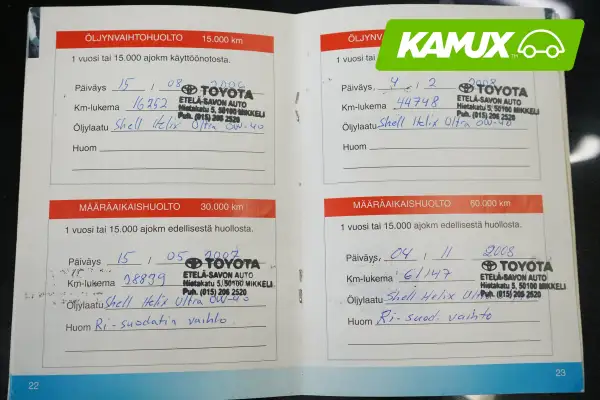 KAMUX
ÖLJYNVAIHTOHUOLTO 15.000 km
1 vuosi tai 15.000 ajokm käyttöönotosta.
Päiväys 15 / 08 2006
TOYOTA
ETELÄ-SAVON AUTO
Nietakatu 5, 50100 MIKKELI
Puh. (015) 206 2520
Km-lukema 16252
Öljylaatu Shell Helix Ultra 0W-40
Huom
MÄÄRÄAIKAISHUOLTO 30.000 km
1 vuosi tai 15.000 ajokm edellisestä huollosta.
Päiväys 15 / 05 2007
TOYOTA
ETELÄ-SAVON AUTO
Nietakatu 5, 50100 MIKKELI
Puh. (015) 206 2520
Km-lukema 28839
Öljylaatu Shell Helix Ultra 0W-40
Huom Ri-suodatin vaihto
22
1 vuosi tai 15.000 ajokm
Päiväys 4 / 2 2008
TOYOTA
ETELÄ-SAVON AUTO
Nietakatu 5, 50100 MIKKELI
Puh. (015) 206 2520
Km-lukema 44748
Öljylaatu Shell Helix Ultra 0W-40
Huom
MÄÄRÄAIKAISHUOLTO 60.000 km
1 vuosi tai 15.000 ajokm edellisestä huollosta.
Päiväys 04 / 11 2008
TOYOTA
ETELÄ-SAVON AUTO
Nietakatu 5, 50100 MIKKELI
Puh. (015) 206 2520
Km-lukema 61147
Öljylaatu Shell Helix
Huom Ri-suod. vaihto
23